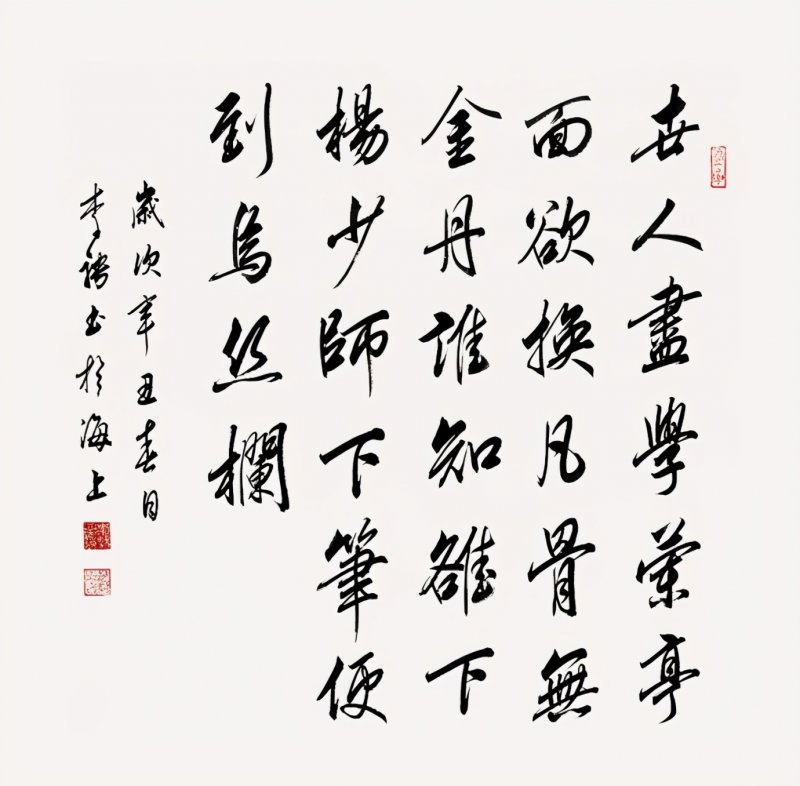 世人盡學蘭亭
面欲換凡骨無
金丹誰知雒下
楊少師下筆便
到烏丝欄
歲次辛丑春月
李書於海上